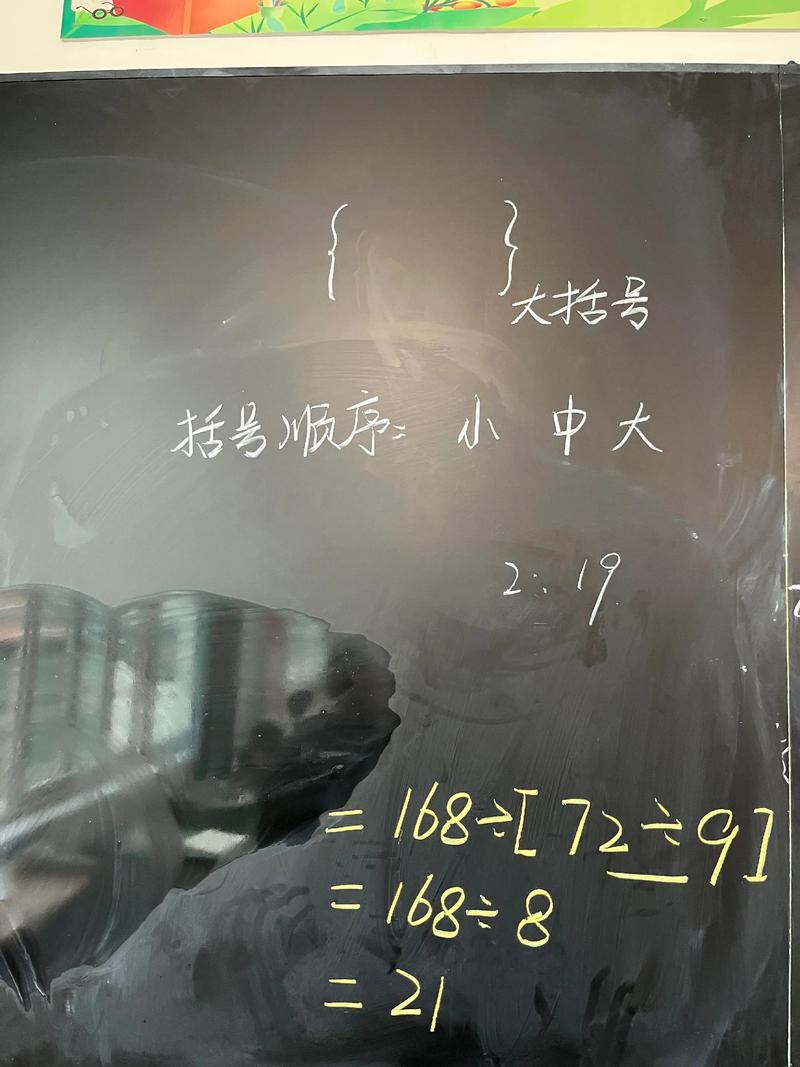 { }
大括号
括号顺序: 小 中 大
2:19
= 168÷[72÷9]
= 168÷8
= 21